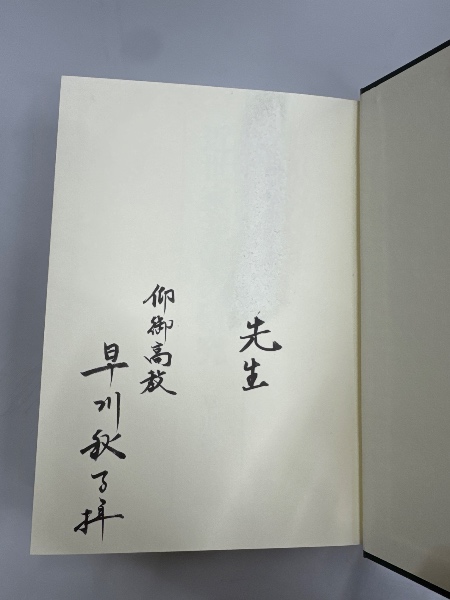 先生
仰御高教
早川秋了拝